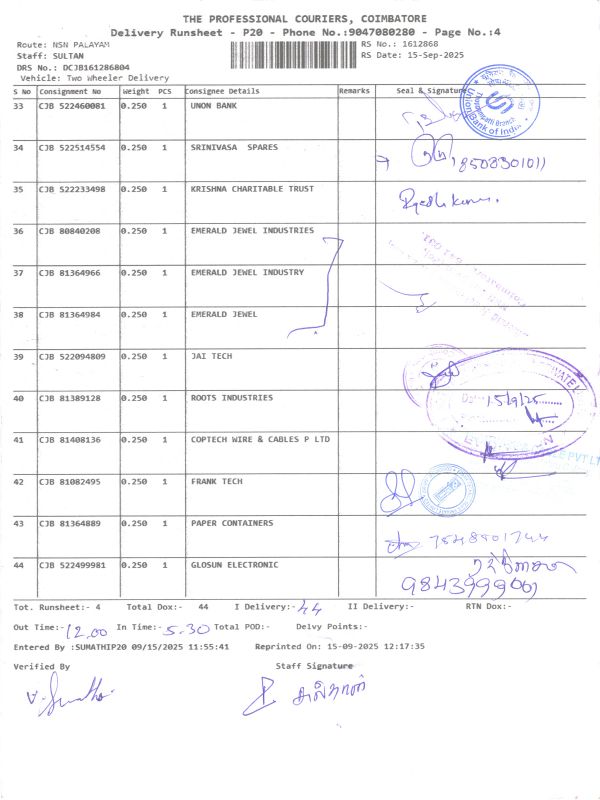 THE PROFESSIONAL COURIERS, COIMBATORE
Delivery Runsheet - P20 - Phone No.:9047080280 - Page No.:4
Route: NSN PALAYAM RS No.: 1612868
Staff: SULTAN RS Date: 15-Sep-2025
DRS No.: DCJB161286804
Vehicle: Two Wheeler Delivery
S No Consignment No Weight PCS Consignee Details Remarks Seal & Signature
33 CJB 522460081 0.250 1 UNON BANK
Union Bank of India
34 CJB 522514554 0.250 1 SRINIVASA SPARES 8508301011
35 CJB 522233498 0.250 1 KRISHNA CHARITABLE TRUST
36 CJB 80840208 0.250 1 EMERALD JEWEL INDUSTRIES
37 CJB 81364966 0.250 1 EMERALD JEWEL INDUSTRY
38 CJB 81364984 0.250 1 EMERALD JEWEL
39 CJB 522094809 0.250 1 JAI TECH
40 CJB 81389128 0.250 1 ROOTS INDUSTRIES 15/9/25
41 CJB 81408136 0.250 1 COPTECH WIRE & CABLES P LTD
42 CJB 81082495 0.250 1 FRANK TECH
43 CJB 81364889 0.250 1 PAPER CONTAINERS
44 CJB 522499981 0.250 1 GLOSUN ELECTRONIC
Tot. Runsheet:- 4 Total Dox:- 44 I Delivery:- 44 II Delivery:- RTN Dox:-
Out Time:- 12.00 In Time:- 5.30 Total POD:- Delvy Points:-
Entered By :SUMATHIP20 09/15/2025 11:55:41 Reprinted On: 15-09-2025 12:17:35
Verified By Staff Signature
சுல்தான்